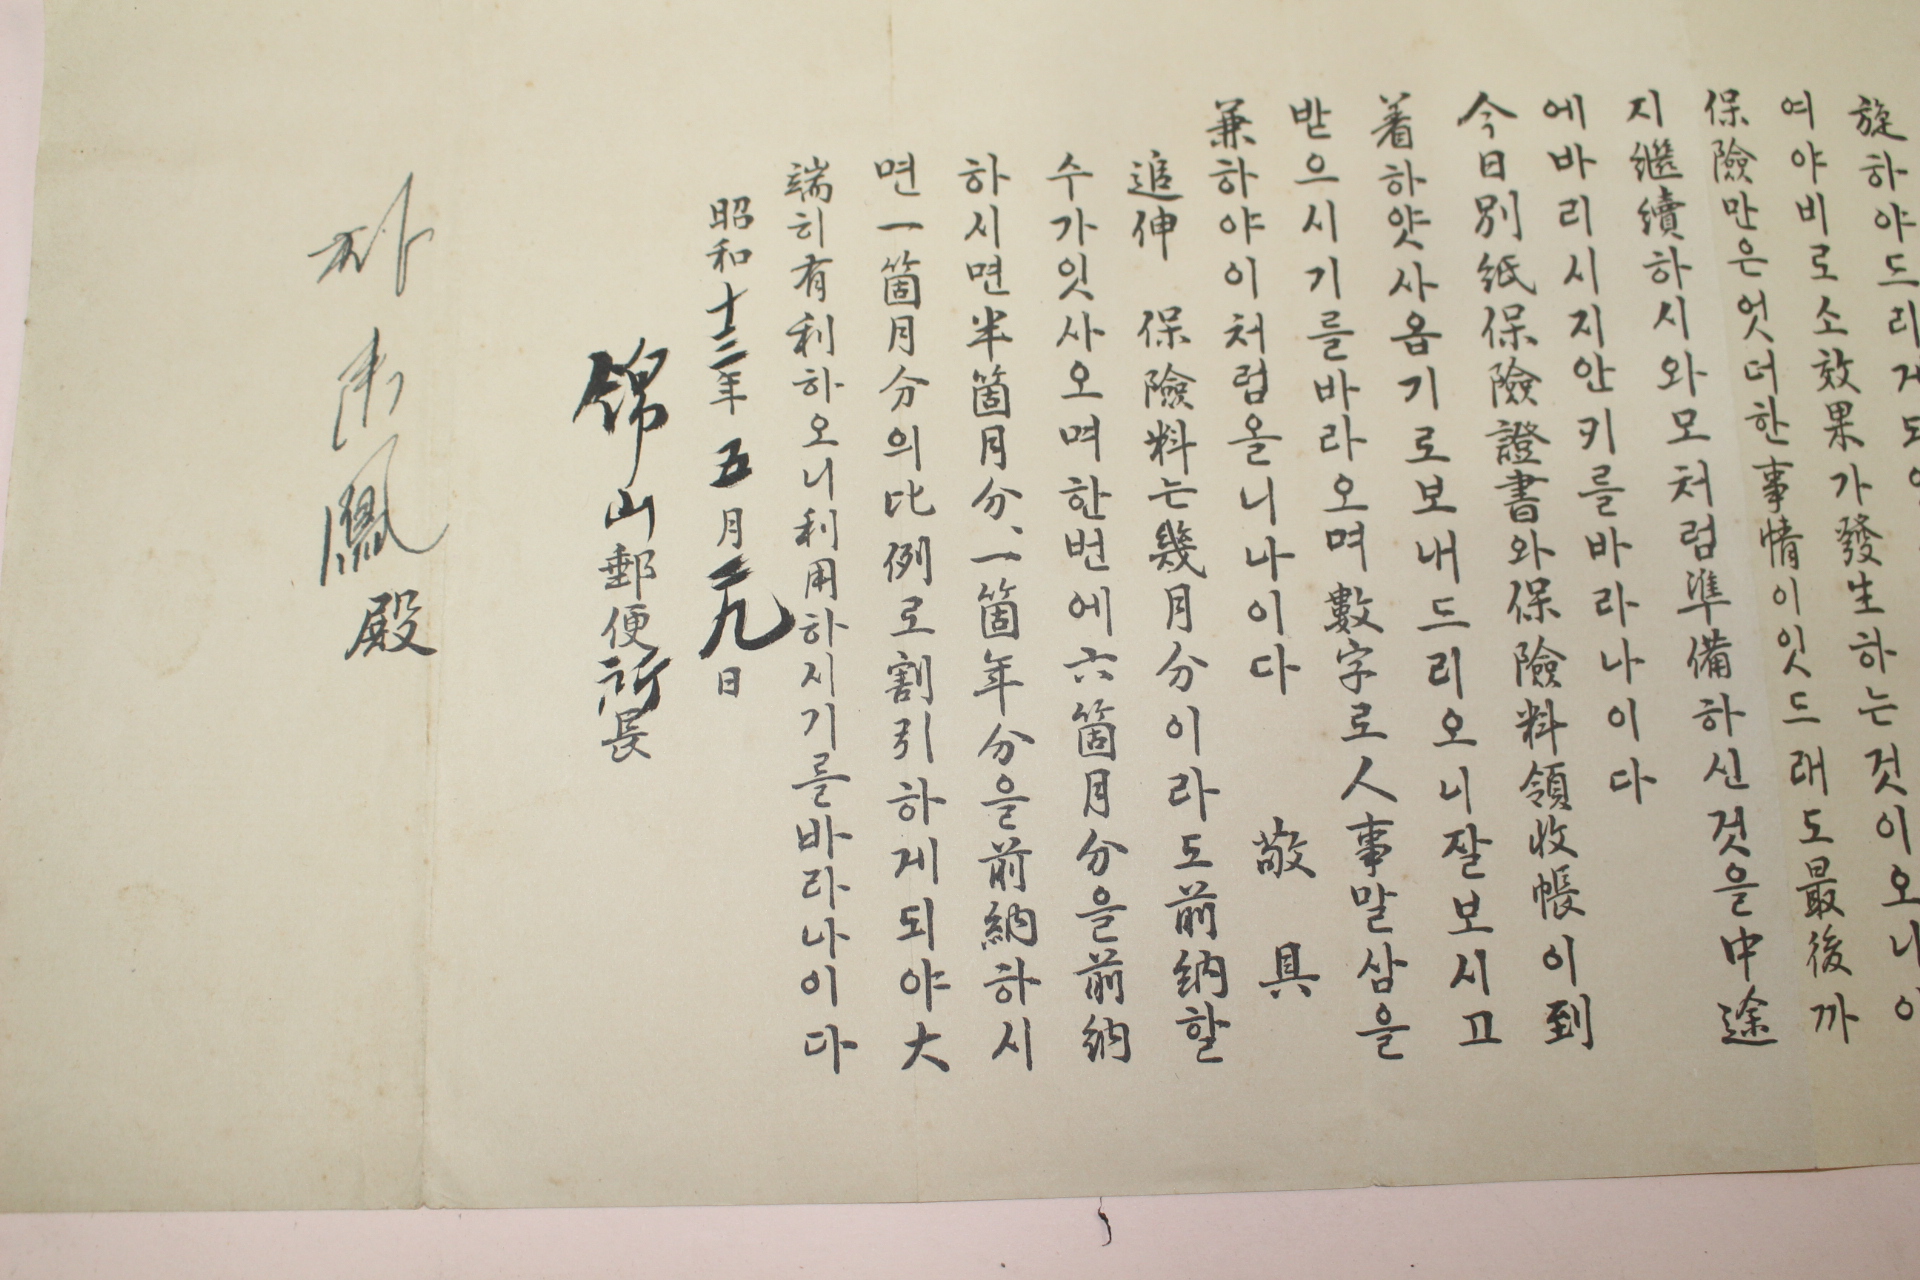 旋하야드리게되
여야비로소效果가發生하는것이오니
保險만은엇더한事情이잇드래도最後까
지繼續하시와모처럼準備하신것을中途
에바리시지안키를바라나이다
今日別紙保險證書와保險料領收帳이到
着하얏사옵기로보내드리오니잘보시고
받으시기를바라오며數字로人事말삼을
兼하야이처럼올니나이다 敬具
追伸 保險料는幾月分이라도前納할
수가잇사오며한번에六箇月分을前納
하시면半箇月分、一箇年分을前納하시
면一箇月分의比例로割引하게되야大
端히有利하오니利用하시기를바라나이다
昭和十三年五月二九日
錦山郵便所長
鳳殿